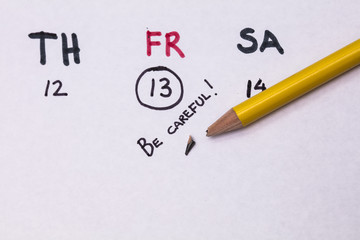 TH FR SA
12 13 14
BE CAREFUL!